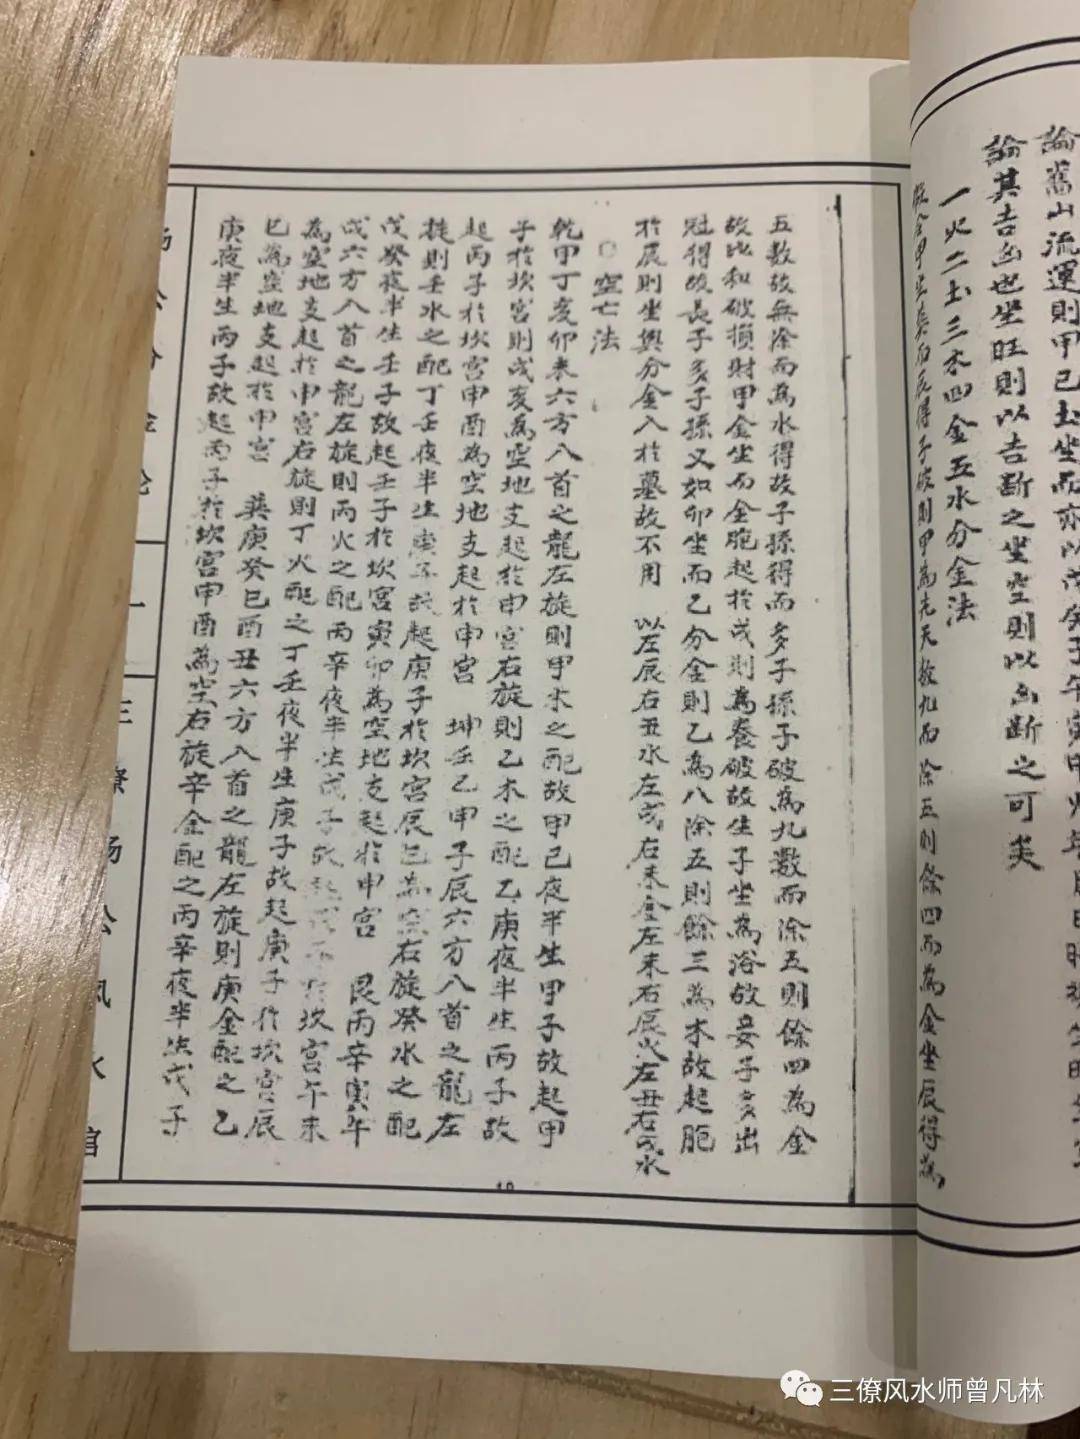 論舊山流運則甲己土坐而亦以戊癸子午寅申火年月日時
論其吉凶也坐旺則以吉斷之坐空則以凶斷之可矣
一火二土三木四金五水分金法
得子破則甲為先天數九而除五則餘四而為金坐辰得為
五數故無除而為水得故子孫得而多子孫子破為九數而除五則餘四為金
故比和破損財甲金坐而金胞起於戌則為養破故生子坐為浴故妾子多出
冠得故長子多子孫又如卯坐而乙分金則乙為八除五則餘三為木故起胞
於辰則坐與分金入於墓故不用 以左辰右丑水左戌右未金左未右辰火左丑右戌水
空亡法
乾甲丁亥卯未六方八首之龍左旋則甲木之配故甲己夜半生甲子故起甲
子於坎宮則戌亥為空地支起於申宮右旋則乙木之配乙庚夜半生丙子故
起丙子於坎宮申酉為空地支起於申宮 坤壬乙申子辰六方八首之龍左
旋則壬水之配丁壬夜半生庚子故起庚子於坎宮辰巳為空右旋癸水之配
戊癸夜半生壬子故起壬子於坎宮寅卯為空地支起於申宮 艮丙辛寅午
戌六方八首之龍左旋則丙火之配丙辛夜半生戊子故起戊子於坎宮午未
為空地支起於申宮右旋則丁火配之丁壬夜半生庚子故起庚子於坎宮辰
巳為空地支起於申宮 巽庚癸巳酉丑六方八首之龍左旋則庚金配之乙
庚夜半生丙子故起丙子於坎宮申酉為空右旋辛金配之丙辛夜半生戊子
楊公分金論
一
三僚楊公風水館
三僚风水师曾凡林